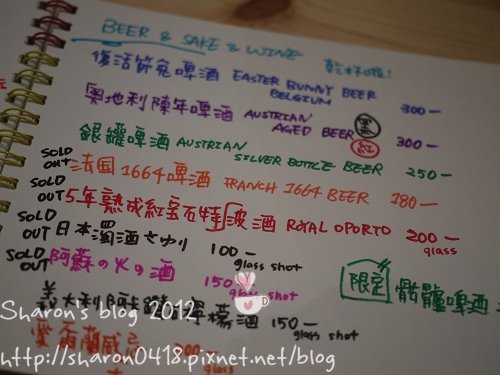 BEER & SAKE & WINE 乾杯啦!
復活節兔啤酒 EASTER BUNNY BEER BELGIUM 300-
奧地利陳年啤酒 AUSTRIAN AGED BEER 黑 紅 300-
銀罐啤酒 AUSTRIAN SILVER BOTTLE BEER 250-
SOLD OUT 法国1664啤酒 FRANCH 1664 BEER 180-
SOLD OUT 5年熟成紅宝石特波酒 ROYAL OPORTO 200- glass
SOLD OUT 日本濁酒さゆり 100- glass shot
SOLD OUT 阿蘇の火の酒 150- glass shot
限定 骷髏啤酒
義大利 檸檬酒 150- glass shot
愛爾蘭威忌 200-
Sharon's blog 2012
http://sharon0418.pixnet.net/blog